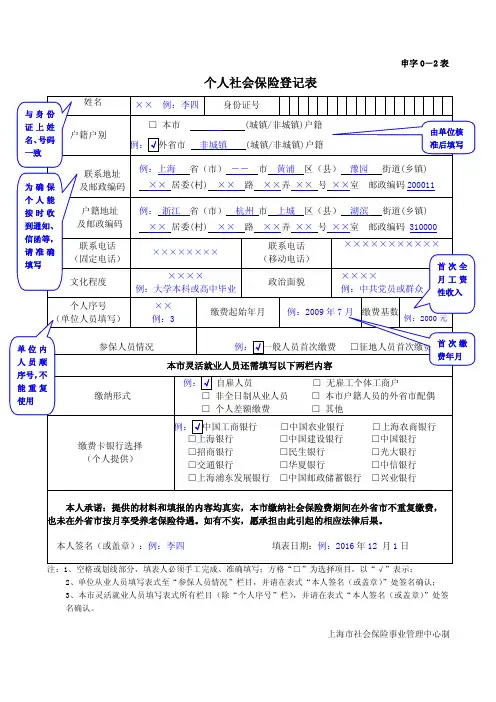 申字0－2表
个人社会保险登记表
姓名 ×× 例：李四 身份证号
与身份
证上姓
名、号码
一致
户籍户别
□ 本市 (城镇/非城镇)户籍
例：√外省市 非城镇 (城镇/非城镇)户籍
由单位核
准后填写
联系地址
及邮政编码
例：上海 省（市） －－ 市 黄浦 区（县） 豫园 街道(乡镇)
×× 居委(村) ×× 路 ××弄 ×× 号 ××室 邮政编码 200011
为确保
个人能
按时收
到通知、
信函等，
请准确
填写
户籍地址
及邮政编码
例： 浙江 省（市） 杭州 市 上城 区（县） 湖滨 街道(乡镇)
×× 居委(村) ×× 路 ××弄 ×× 号 ××室 邮政编码 310000
联系电话
（固定电话）
××××××××
联系电话
（移动电话）
×××××××××××
文化程度
××××
例：大学本科或高中毕业
政治面貌
××××
例：中共党员或群众
首次全
月工资
性收入
个人序号
（单位人员填写）
××
例：3
缴费起始年月 例：2009年7月 缴费基数
例：2000元
单位内
人员顺
序号，不
能重复
使用
参保人员情况 例：√一般人员首次缴费 □征地人员首次缴费
首次缴
费年月
本市灵活就业人员还需填写以下两栏内容
缴纳形式
例：√ 自雇人员 □ 无雇工个体工商户
□ 非全日制从业人员 □ 本市户籍人员的外省市配偶
□ 个人差额缴费 □ 其他
缴费卡银行选择
（个人提供）
例：√中国工商银行 □中国农业银行 □上海农商银行
□上海银行 □中国建设银行 □中国银行
□招商银行 □民生银行 □光大银行
□交通银行 □华夏银行 □中信银行
□上海浦东发展银行 □中国邮政储蓄银行 □兴业银行
本人承诺：提供的材料和填报的内容均真实，本市缴纳社会保险费期间在外省市不重复缴费，
也未在外省市按月享受养老保险待遇。如有不实，愿承担由此引起的相应法律后果。
本人签名（或盖章）：例：李四 填表日期：例：2016年12月1日
注：1、空格或划线部分，填表人必须手工完成、准确填写；方格“□”为选择项目，以“√”表示；
2、单位从业人员填写表式至“参保人员情况”栏目，并请在表式“本人签名（或盖章）”处签名确认；
3、本市灵活就业人员填写表式所有栏目（除“个人序号”栏），并请在表式“本人签名（或盖章）”处签
名确认。
上海市社会保险事业管理中心制